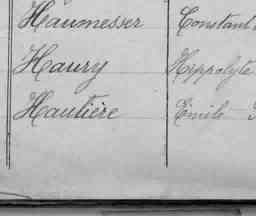 Haumesser Constant
Haury Hippolyte
Hautière Émile